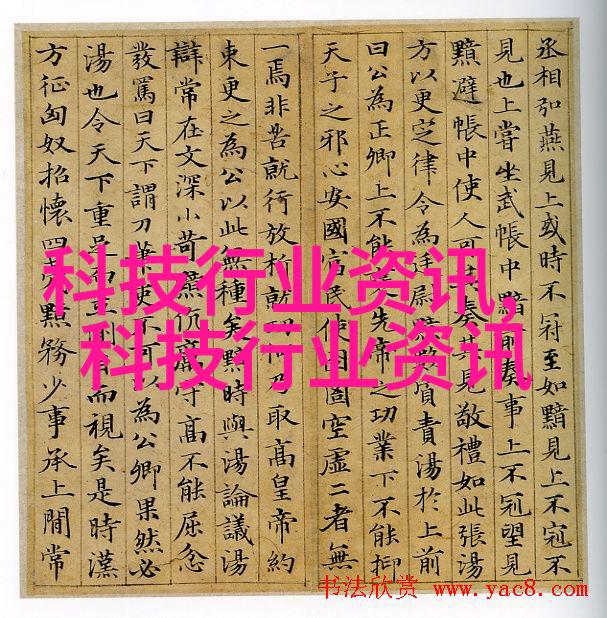 丞相弘燕見上或時不冠至如黯見上不冠不
見也上嘗坐武帳中黯前奏事上不冠望見
黯避帳中使人可其奏其見敬禮如此張湯
方以更定律令為廷尉數質責湯於上前
曰公為正卿上不能先帝之功業下不能抑
天子之邪心安國富民使囹圄空虛二者無
一焉非苦就行放析就乃取高皇帝約
束更之為公以此無種矣黯時與湯論議湯
辯常在文深小苛黯伉厲守高不能屈忿
發罵曰天下謂刀筆吏不可以為公卿果然必
湯也令天下重足而立目而視矣是時漢
方征匈奴招懷四夷黯務少事承上間常
科技行业资讯,
科技行业资讯
书法欣赏 www.yac8.com